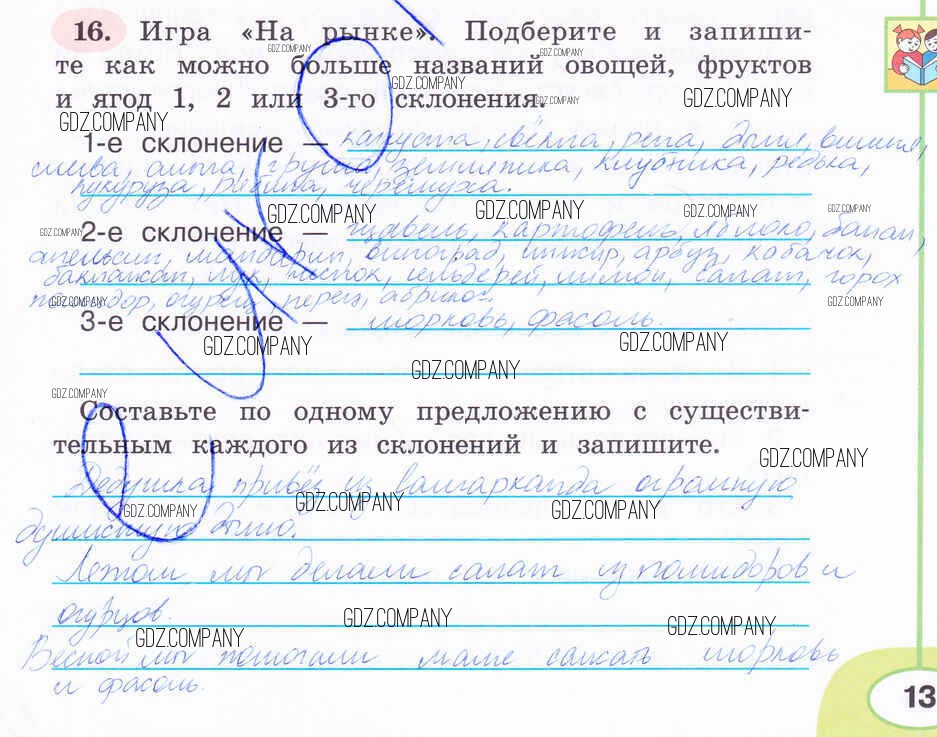 16. Игра «На рынке». Подберите и запиши-
те как можно больше названий овощей, фруктов
и ягод 1, 2 или 3-го склонения.
1-е склонение — капуста, свёкла, репа, дыня, вишня,
слива, айва, груша, земляника, клубника, редька,
кукуруза, малина, черемуха.
2-е склонение — щавель, картофель, яблоко, банан,
апельсин, мандарин, виноград, инжир, арбуз, кабачок,
баклажан, лук, чеснок, сельдерей, лимон, салат, горох
помидор, огурец, перец, абрикос.
3-е склонение — морковь, фасоль.
Составьте по одному предложению с существи-
тельным каждого из склонений и запишите.
Дедушка привёз из огромную
душистую дыню.
Летом мы делали салат из помидоров и
огурцов.
Весной мы помогали маме сажать морковь
и фасоль.
13
GDZ.COMPANY